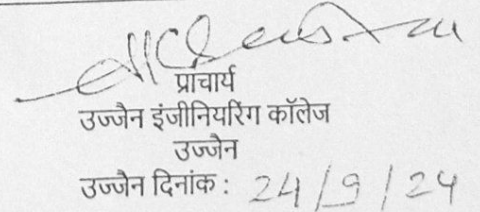 प्राचार्य
उज्जैन इंजीनियरिंग कॉलेज
उज्जैन
उज्जैन दिनांक : 24/9/24